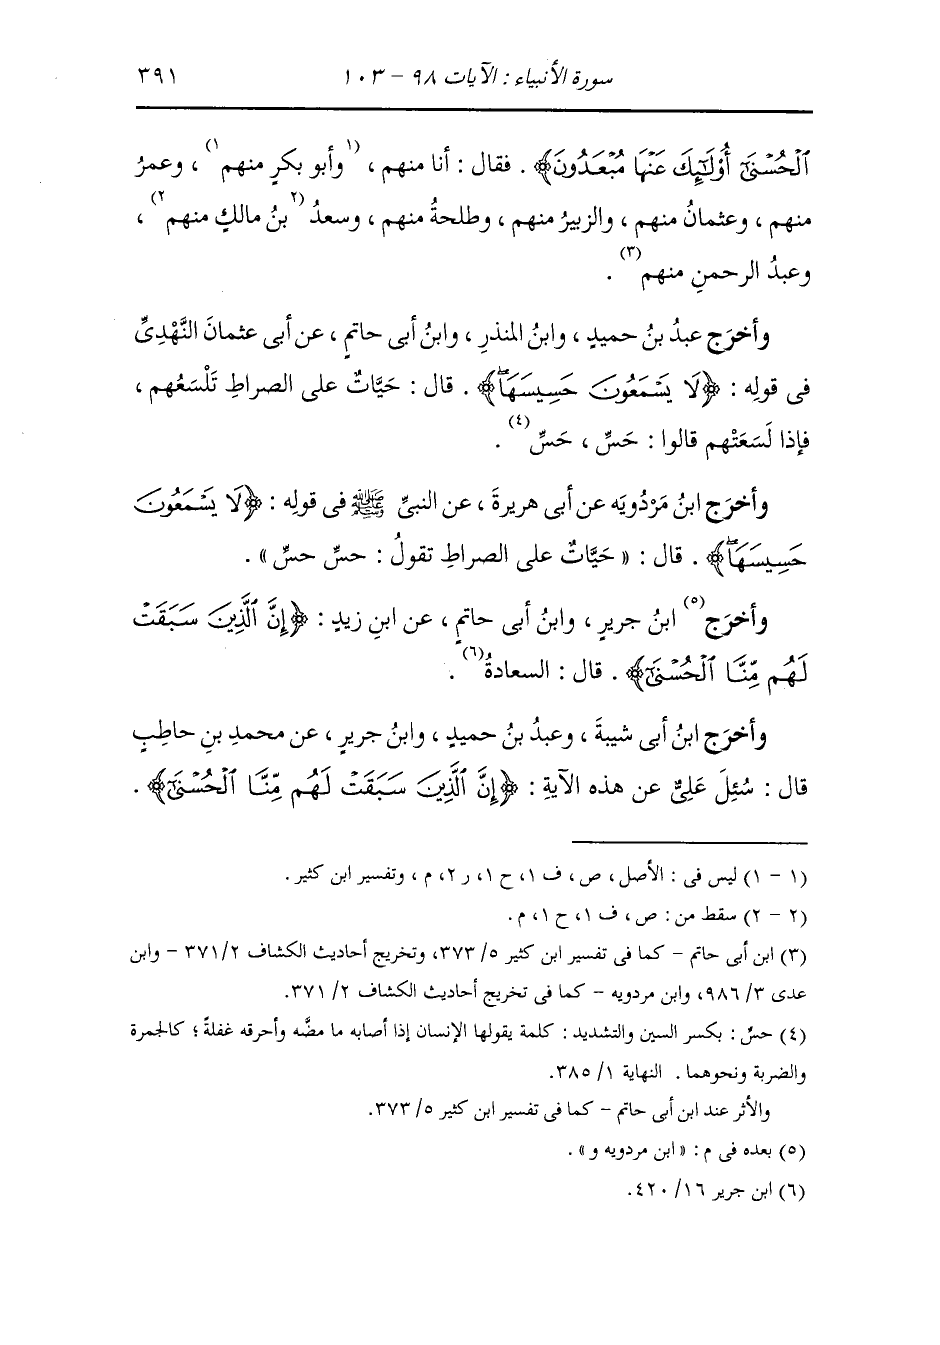 سورة الأنبياء : الآيات ٩٨ - ١٠٣ ٣٩١
ٱلْحُسْنَىٰٓ أُو۟لَـٰٓئِكَ عَنْهَا مُبْعَدُونَ﴾ . فقال : أنا منهم ، (١وأبو بكرٍ منهم١) ، وعمرُ
منهم ، وعثمانُ منهم ، والزبيرُ منهم ، وطلحةُ منهم ، وسعدُ (٢بنُ مالكٍ منهم٢) ،
وعبدُ الرحمنِ منهم(٣) .
وأخرَج عبدُ بنُ حميدٍ ، وابنُ المنذرِ ، وابنُ أبى حاتمٍ ، عن أبى عثمانَ النَّهْدِىِّ
فى قولِه : ﴿لَا يَسْمَعُونَ حَسِيسَهَاۖ﴾ . قال : حَيَّاتٌ على الصراطِ تَلْسَعُهم ،
فإذا لَسَعَتْهم قالوا : حَسِّ ، حَسِّ(٤) .
وأخرَج ابنُ مَرْدُويَه عن أبى هريرةَ ، عن النبىِّ ﷺ فى قولِه : ﴿لَا يَسْمَعُونَ
حَسِيسَهَاۖ﴾ . قال : « حَيَّاتٌ على الصراطِ تقولُ : حسِّ حسِّ » .
وأخرَج(٥) ابنُ جريرٍ ، وابنُ أبى حاتمٍ ، عن ابنِ زيدٍ : ﴿إِنَّ ٱلَّذِينَ سَبَقَتْ
لَهُم مِّنَّا ٱلْحُسْنَىٰٓ﴾ . قال : السعادةُ(٦) .
وأخرَج ابنُ أبى شيبةَ ، وعبدُ بنُ حميدٍ ، وابنُ جريرٍ ، عن محمدِ بنِ حاطبٍ
قال : سُئِلَ عَلِىٌّ عن هذه الآيةِ : ﴿إِنَّ ٱلَّذِينَ سَبَقَتْ لَهُم مِّنَّا ٱلْحُسْنَىٰٓ﴾ .
(١ - ١) ليس فى : الأصل ، ص ، ف ١، ح ١، ر ٢، م ، وتفسير ابن كثير .
(٢ - ٢) سقط من : ص ، ف ١، ح ١، م .
(٣) ابن أبى حاتم - كما فى تفسير ابن كثير ٥/ ٣٧٣، وتخريج أحاديث الكشاف ٢/ ٣٧١ - وابن
عدى ٣/ ٩٨٦، وابن مردويه - كما فى تخريج أحاديث الكشاف ٢/ ٣٧١.
(٤) حسِّ : بكسر السين والتشديد : كلمة يقولها الإنسان إذا أصابه ما مضَّه وأحرقه غفلةً ؛ كالجمرة
والضربة ونحوهما . النهاية ١/ ٣٨٥.
والأثر عند ابن أبى حاتم - كما فى تفسير ابن كثير ٥/ ٣٧٣.
(٥) بعده فى م : « ابن مردويه و » .
(٦) ابن جرير ١٦/ ٤٢٠.